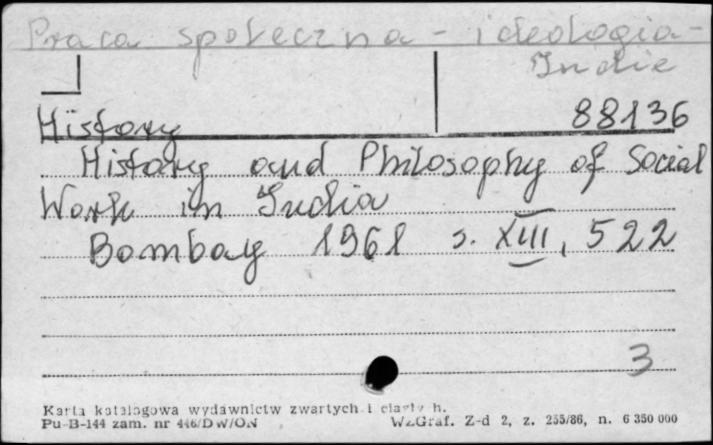 Praca społeczna - ideologia -
Indie
88136
History
History and Philosophy of Social
Work in India
Bombay 1961 s. XIII, 522
3
Karta katalogowa wydawnictw zwartych i ciągłych.
Pu-B-144 zam. nr 446/DW/ON
WZGraf. Z-d 2, z. 255/86, n. 6 350 000